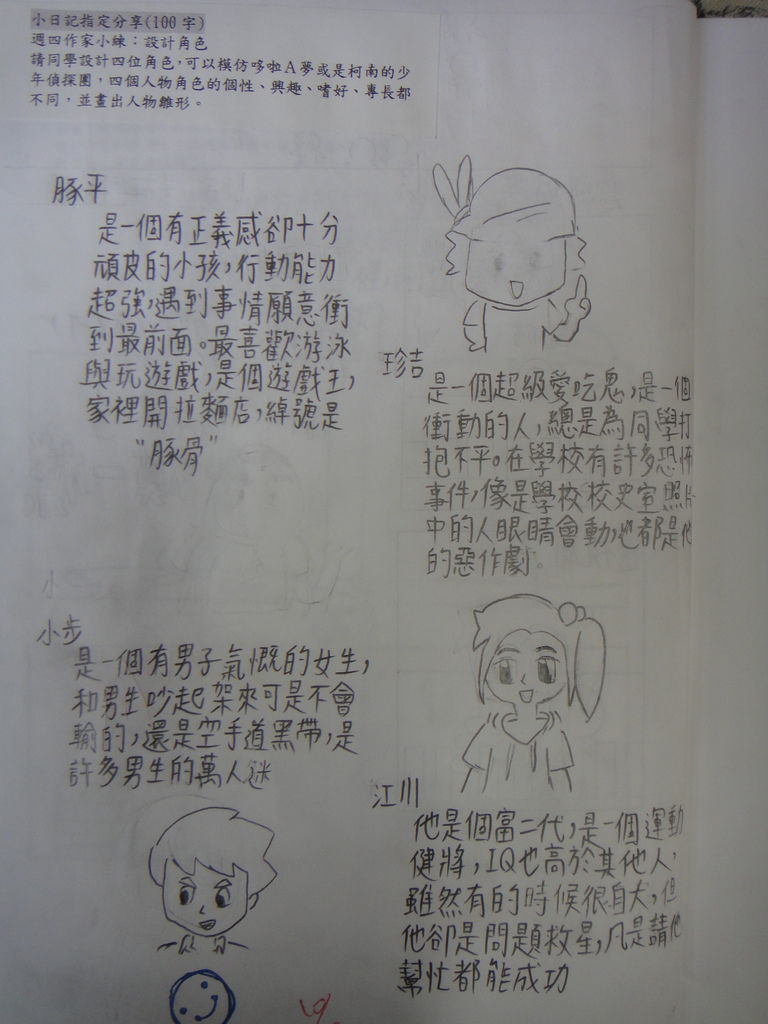 小日記指定分享(100字)
週四作家小練：設計角色
請同學設計四位角色，可以模仿哆啦A夢或是柯南的少
年偵探團，四個人物角色的個性、興趣、嗜好、專長都
不同，並畫出人物雛形。
豚平
是一個有正義感卻十分
頑皮的小孩，行動能力
超強，遇到事情願意衝
到最前面。最喜歡游泳
與玩遊戲，是個遊戲王，
家裡開拉麵店，綽號是
"豚骨"
珍吉
是一個超級愛吃鬼，是一個
衝動的人，總是為同學打
抱不平。在學校有許多恐怖
事件，像是學校校史室照片
中的人眼睛會動，也都是他
的惡作劇。
小步
是一個有男子氣慨的女生，
和男生吵起架來可是不會
輸的，還是空手道黑帶，是
許多男生的萬人迷
江川
他是個富二代，是一個運動
健將，IQ也高於其他人，
雖然有的時候很自大，但
他卻是問題救星，凡是請他
幫忙都能成功